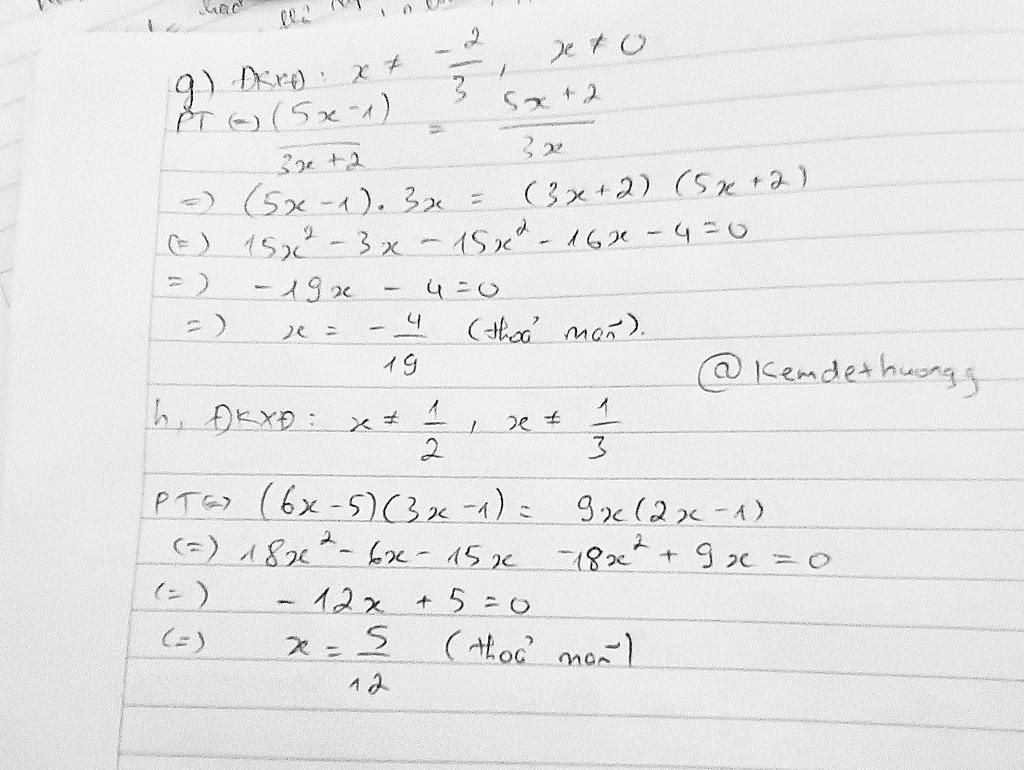 had
g) ĐKXĐ: x ≠ -2/3, x ≠ 0
PT (=) (5x-1)/(3x+2) = (5x+2)/(3x)
=) (5x-1). 3x = (3x+2) (5x+2)
(=) 15x² - 3x - 15x² - 16x - 4 = 0
=) - 19x - 4 = 0
=) x = -4/19 (thoả mãn).
@Kemdethuongg
h, ĐKXĐ: x ≠ 1/2, x ≠ 1/3
PT (=) (6x-5)(3x-1) = 9x(2x-1)
(=) 18x² - 6x - 15x -18x² + 9x = 0
(=) - 12x + 5 = 0
(=) x = 5/12 (thoả mãn)